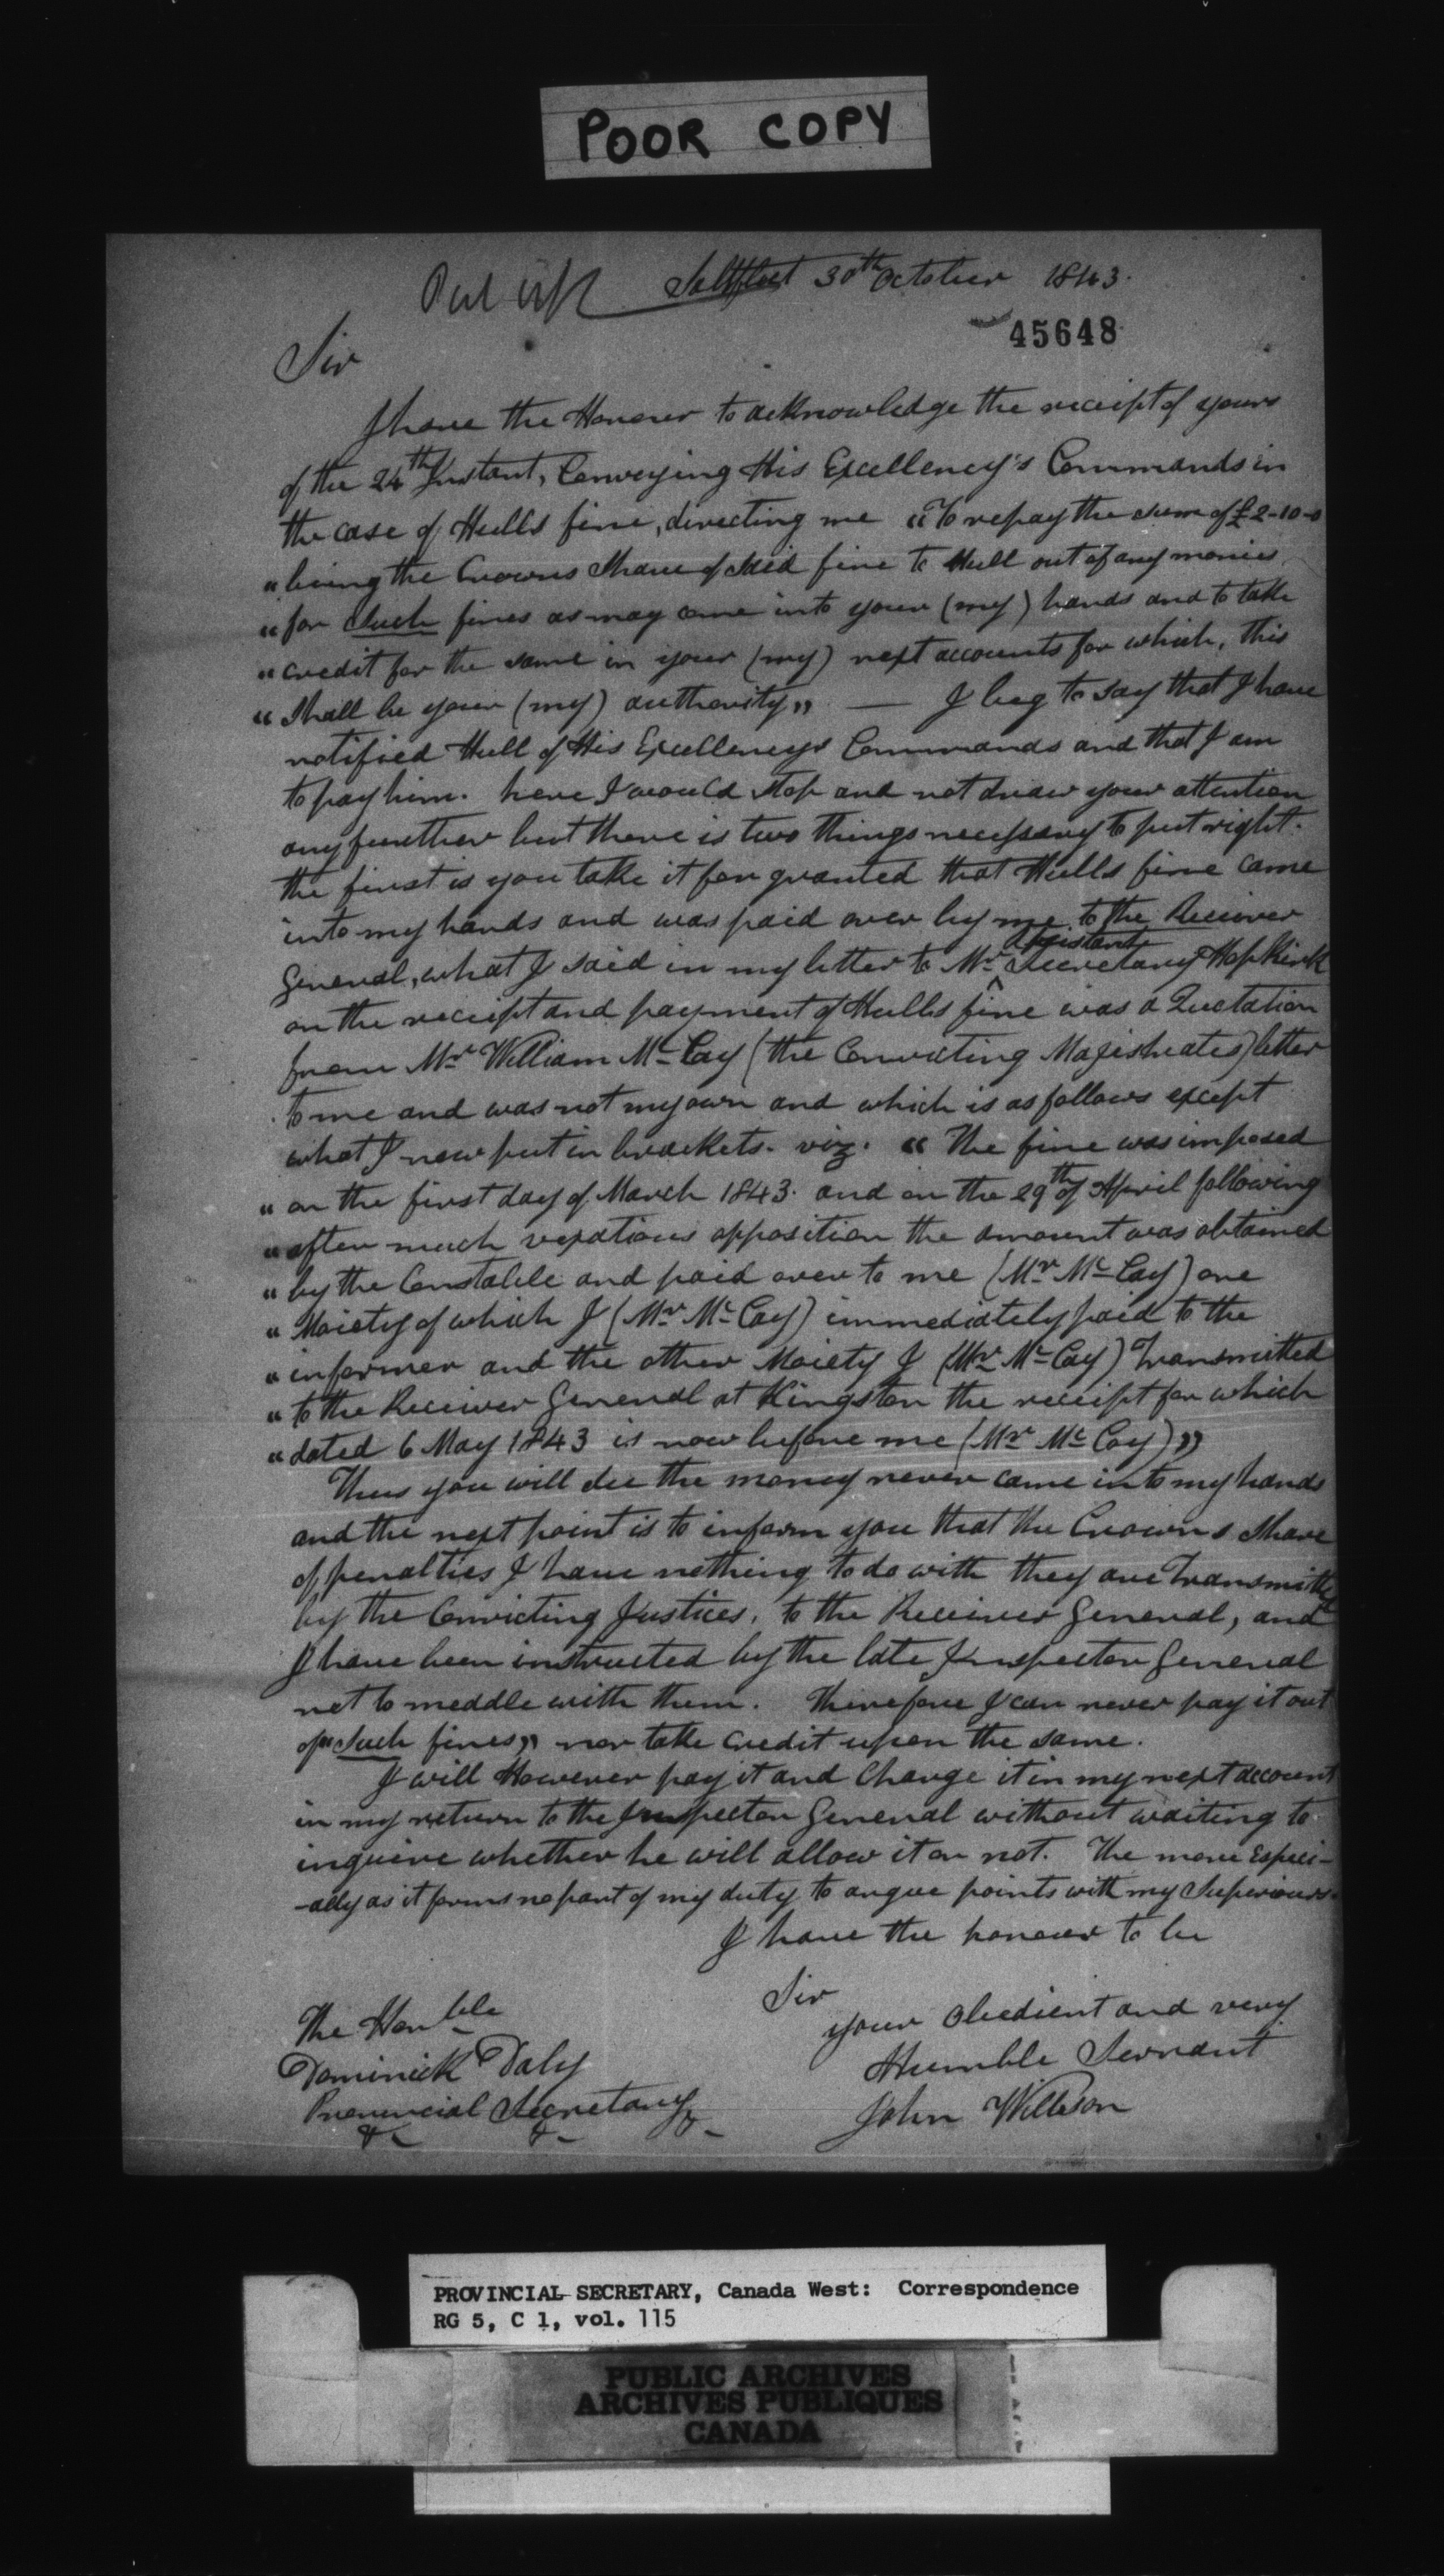 POOR COPY
Saltfleet 30th October 1843.
45648
Sir
I have the Honour to acknowledge the receipt of yours
of the 24th Instant, Conveying His Excellency's Commands in
the case of Hulls fine, directing me "To repay the sum of £2-10-0
"being the Crowns Share of Said fine to Hull out of any monies
"for Such fines as may come into your (my) hands and to take
"credit for the same in your (my) next accounts for which, this
"Shall be your (my) authority" — I beg to say that I have
notified Hull of His Excellencys Commands and that I am
to pay him. here I would stop and not draw your attention
any further but there is two things necessary to put right.
the first is you take it for granted that Hulls fine came
into my hands and was paid over by me to the Reciever
General, what I said in my letter to Mr Assistant Secretary Hopkirk
on the receipt and payment of Hulls fine was a Quotation
from Mr William McCay (the Convicting Magistrates) letter
to me and was not my own and which is as follows except
what I now put in brackets. viz. "The fine was imposed
"on the first day of March 1843. and on the 29th of April following
"after much vexatious opposition the amount was obtained
"by the Constable and paid over to me (Mr McCay) one
"Moiety of which I (Mr McCay) immediately paid to the
"informer and the other Moiety I (Mr McCay) Transmitted
"to the Reciever General at Kingston the receipt for which
"dated 6 May 1843 is now before me (Mr McCay)"
Thus you will see the money never came into my hands
and the next point is to inform you that the Crowns Share
of penalties I have nothing to do with they are Transmitted
by the Convicting Justices, to the Reciever General, and
I have been instructed by the late Inspector General
not to meddle with them. Therefore I can never pay it out
of "Such fines" nor take Credit upon the same.
I will However pay it and Charge it in my next account
in my return to the Inspector General without waiting to
inquire whether he will allow it or not. The more Especi-
-ally as it forms no part of my duty to argue points with my Superiours.
I have the honour to be
Sir
your Obedient and very
Humble Servant
John Willson
The Honble
Dominick Daly
Provincial Secretary
&- &- &-
PROVINCIAL SECRETARY, Canada West: Correspondence
RG 5, C 1, vol. 115
PUBLIC ARCHIVES
ARCHIVES PUBLIQUES
CANADA